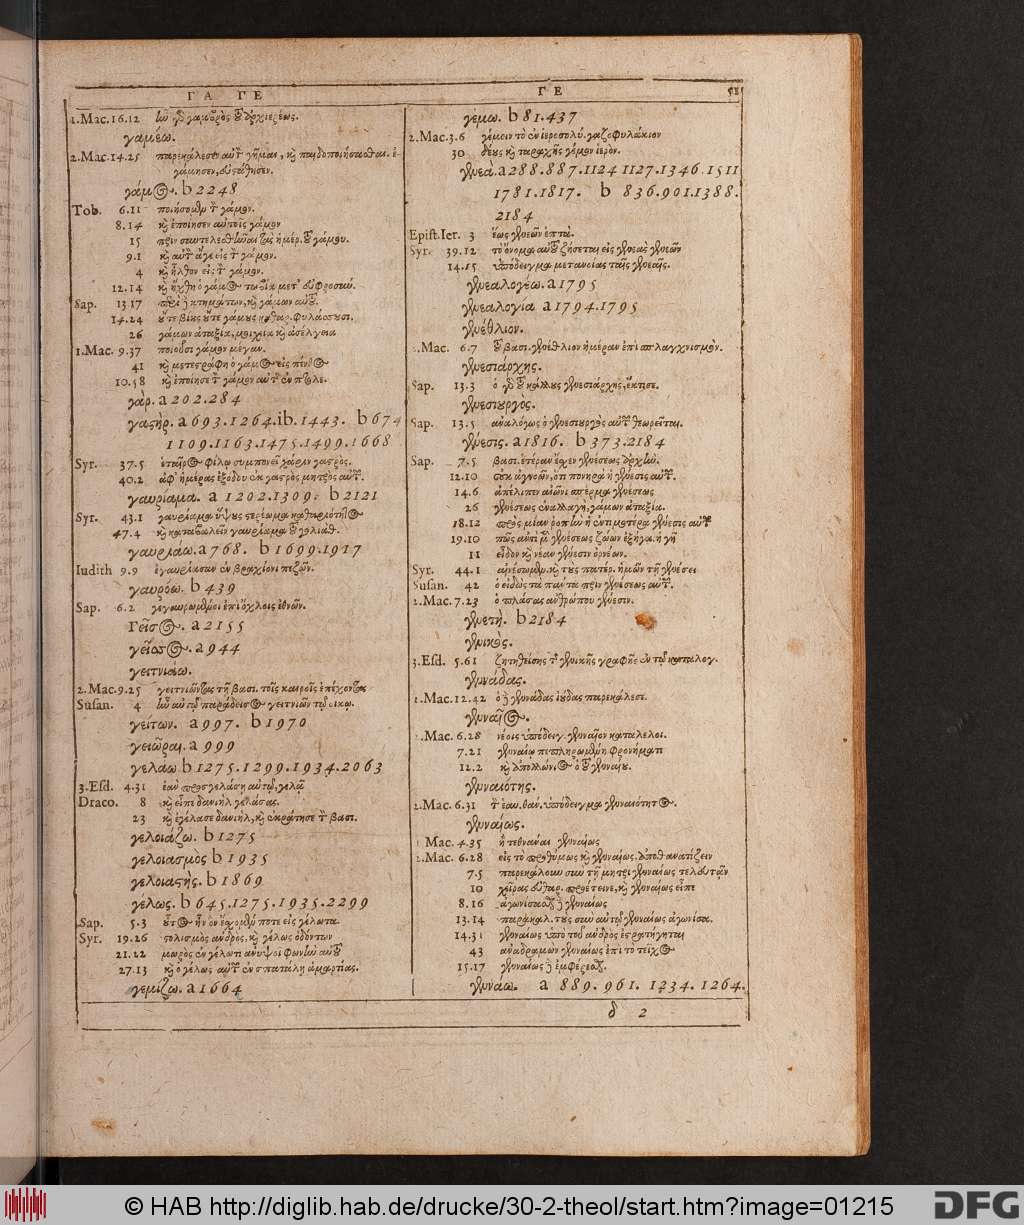 ΓΑ ΓΕ
1.Mac.16.12 ἰω ἀρχιερέως.
γαμέω.
2.Mac.14.25 παρεκάλεσεν αὐτ γῆμαι, κỳ παιδοποιήσασθαι. ἐ-
γάμησεν, εὐστάθησεν.
γάμος. b 2248
Tob. 6.11 γάμον.
8.14 κỳ ἐποίησεν αὐτοῖς γάμον
15 πρὶν γάμου.
9.1 γάμον.
4 κỳ ἦλθον εἰς τ γάμον.
12.14
Sap. 13.17 κτημάτων, κỳ γάμων αὐτοῦ.
14.24 οὔτε βίους οὔτε γάμους φυλάσσουσι.
26 γάμων ἀταξία, μοιχεία κỳ ἀσέλγεια
1.Mac. 9.37 ποιοῦσι γάμον μέγαν.
41 κỳ μετεστράφη ὁ γάμος εἰς πένθος
10.58 κỳ ἐποίησε τ γάμον αὐτ ἐν
γάρ. a 202.284
γαςήρ. a 693.1264.ib.1443. b 674
1109.1163.1475.1499.1668
Syr. 37.5 ἑταῖρος φίλῳ συμπονεῖ χάριν γαςρὸς.
40.2 ἀφ᾽ ἡμέρας ἐξόδου ἐκ γαςρὸς μητρὸς αὐτ.
γαυρίαμα. a 1202.1309. b 2121
Syr. 43.1 γαυρίαμα ὕψους ςερέωμα καθαριότητος
47.4 κỳ καταβαλεῖν γαυρίαμα τοῦ γολιάθ.
γαυριάω. a 768. b 1699.1917
Iudith 9.9 ἐγαυρίασαν ἐν βραχίονι πεζῶν.
γαυρόω. b 439
Sap. 6.2 γεγαυρωμένοι ἐπὶ ὄχλοις ἐθνῶν.
Γεῖσος. a 2155
a 944
γειτνιάω.
2.Mac.9.25 γειτνιῶντας τῇ βασι. τοῖς καιροῖς ἐπέχοντας
Susan. 4 ἰω αὐτῷ παράδεισος γειτνιῶν τῷ οἴκῳ.
γείτων. a 997. b 1970
γειῶραι. a 999
γελάω b 1275.1299.1934.2063
3.Esd. 4.31 ἐὰν προσγελάσῃ αὐτῷ, γελᾷ
Draco. 8 κỳ εἶπε δανιὴλ γελάσας.
23 κỳ ἐγέλασε δανιὴλ, κỳ ἐκράτησε τ βασι.
γελοιάζω. b 1275
γελοιασμὸς b 1935
γελοιαςής. b 1869
γέλως. b 645.1275.1935.2299
Sap. 5.3 οὗτος ἦν ὃν ἔσχομέν ποτε εἰς γέλωτα.
Syr. 19.26 ςολισμὸς ἀνδρὸς, κỳ γέλως ὀδόντων
21.22 μωρὸς ἐν γέλωτι ἀνυψοῖ φωνὴν αὐτοῦ
27.13 κỳ ὁ γέλως αὐτ ἐν σπατάλῃ ἁμαρτίας.
γεμίζω. a 1664
ΓΕ 51
γέμω. b 81.437
2.Mac.3.6 γέμειν τὸ ἐν ἱεροσολύ. γαζοφυλάκιον
30 δέους κỳ ταραχῆς γέμον ἱερὸν.
γενεά. a 288.887.1124 1127.1346.1511
1781.1817. b 836.901.1388.
2184
Epist.Ier. 3 ἕως γενεῶν ἑπτά.
Syr. 39.12 τὸ ὄνομα αὐτοῦ ζήσεται εἰς γενεὰς γενεῶν
14.15 ὑπόδειγμα μετανοίας ταῖς γενεαῖς.
γενεαλογέω. a 1795
γενεαλογία a 1794.1795
γενέθλιον.
2.Mac. 6.7 τοῦ βασι. γενέθλιον ἡμέραν ἐπὶ σπλαγχνισμὸν.
γενεσιάρχης.
Sap. 13.3 ὁ γὰρ τοῦ κάλλους γενεσιάρχης, ἔκτισε.
γενεσιουργὸς.
Sap. 13.5 ἀναλόγως ὁ γενεσιουργὸς αὐτ θεωρεῖται.
γένεσις. a 1816. b 373.2184
Sap. 7.5 βασι. ἑτέραν ἔσχεν γενέσεως ἀρχὴν.
12.10 οὐκ ἀγνοῶν, ὅτι πονηρὰ ἡ γένεσις αὐτ.
14.6 ἀπέλιπεν αἰῶνι σπέρμα γενέσεως
26 γενέσεως ἐναλλαγὴ, γάμων ἀταξία.
18.12 πρὸς μίαν ῥοπὴν ἡ ἐντιμοτέρα γένεσις αὐτ
19.10 πῶς ἀντὶ μ γενέσεως ζώων ἐξήγα. ἡ γῆ
11 εἶδον κỳ νέαν γένεσιν ὀρνέων.
Syr. 44.1 αἰνέσωμεν. κỳ τοὺς πατέρ. ἡμῶν τῇ γενέσει
Susan. 42 ὁ εἰδὼς τὰ πάντα πρὶν γενέσεως αὐτ.
2.Mac.7.23 ὁ πλάσας ἀνθρώπου γένεσιν.
γενετὴ. b 2184
γενικὸς.
3.Esd. 5.61 ζητηθείσης τ γενικῆς γραφῆς ἐν τῷ καταλογ.
γεννάδας.
1.Mac.12.42 ὁ δὲ γεννάδας ἰούδας παρεκάλεσε.
γενναῖος.
2.Mac. 6.28 νέοις ὑπόδειγ. γενναῖον καταλελοι.
7.21 γενναίῳ πεπληρωμένη φρονήματι
12.2 κỳ ἀπολλώνιος ὁ τοῦ γενναίου.
γενναιότης.
2.Mac. 6.31 τ ἑαυ. θαν. ὑπόδειγμα γενναιότητος.
γενναίως.
1 Mac. 4.35 ἢ τεθνάναι γενναίως
2.Mac. 6.28 εἰς τὸ προθύμως κỳ γενναίως. ἀποθανατίζειν
7.5 παρεκάλουν σὺν τῇ μητρὶ γενναίως τελευτᾷν
10 χεῖρας εὐθαρ. προέτεινε, κỳ γενναίως εἶπε
8.16 ἀγωνίσασθαι δὲ γενναίως
13.14 παρακαλ. τοὺς σὺν αὐτῷ γενναίως ἀγωνίσα.
14.31 γενναίως ὑπὸ τοῦ ἀνδρὸς ἐςρατήγηται
43 ἀναδραμὼν γενναίως ἐπὶ τὸ τεῖχος
15.17 γενναίως δὲ ἐμφέρεσθαι.
γεννάω. a 889.961.1234.1264.
δ 2
© HAB http://diglib.hab.de/drucke/30-2-theol/start.htm?image=01215
DFG